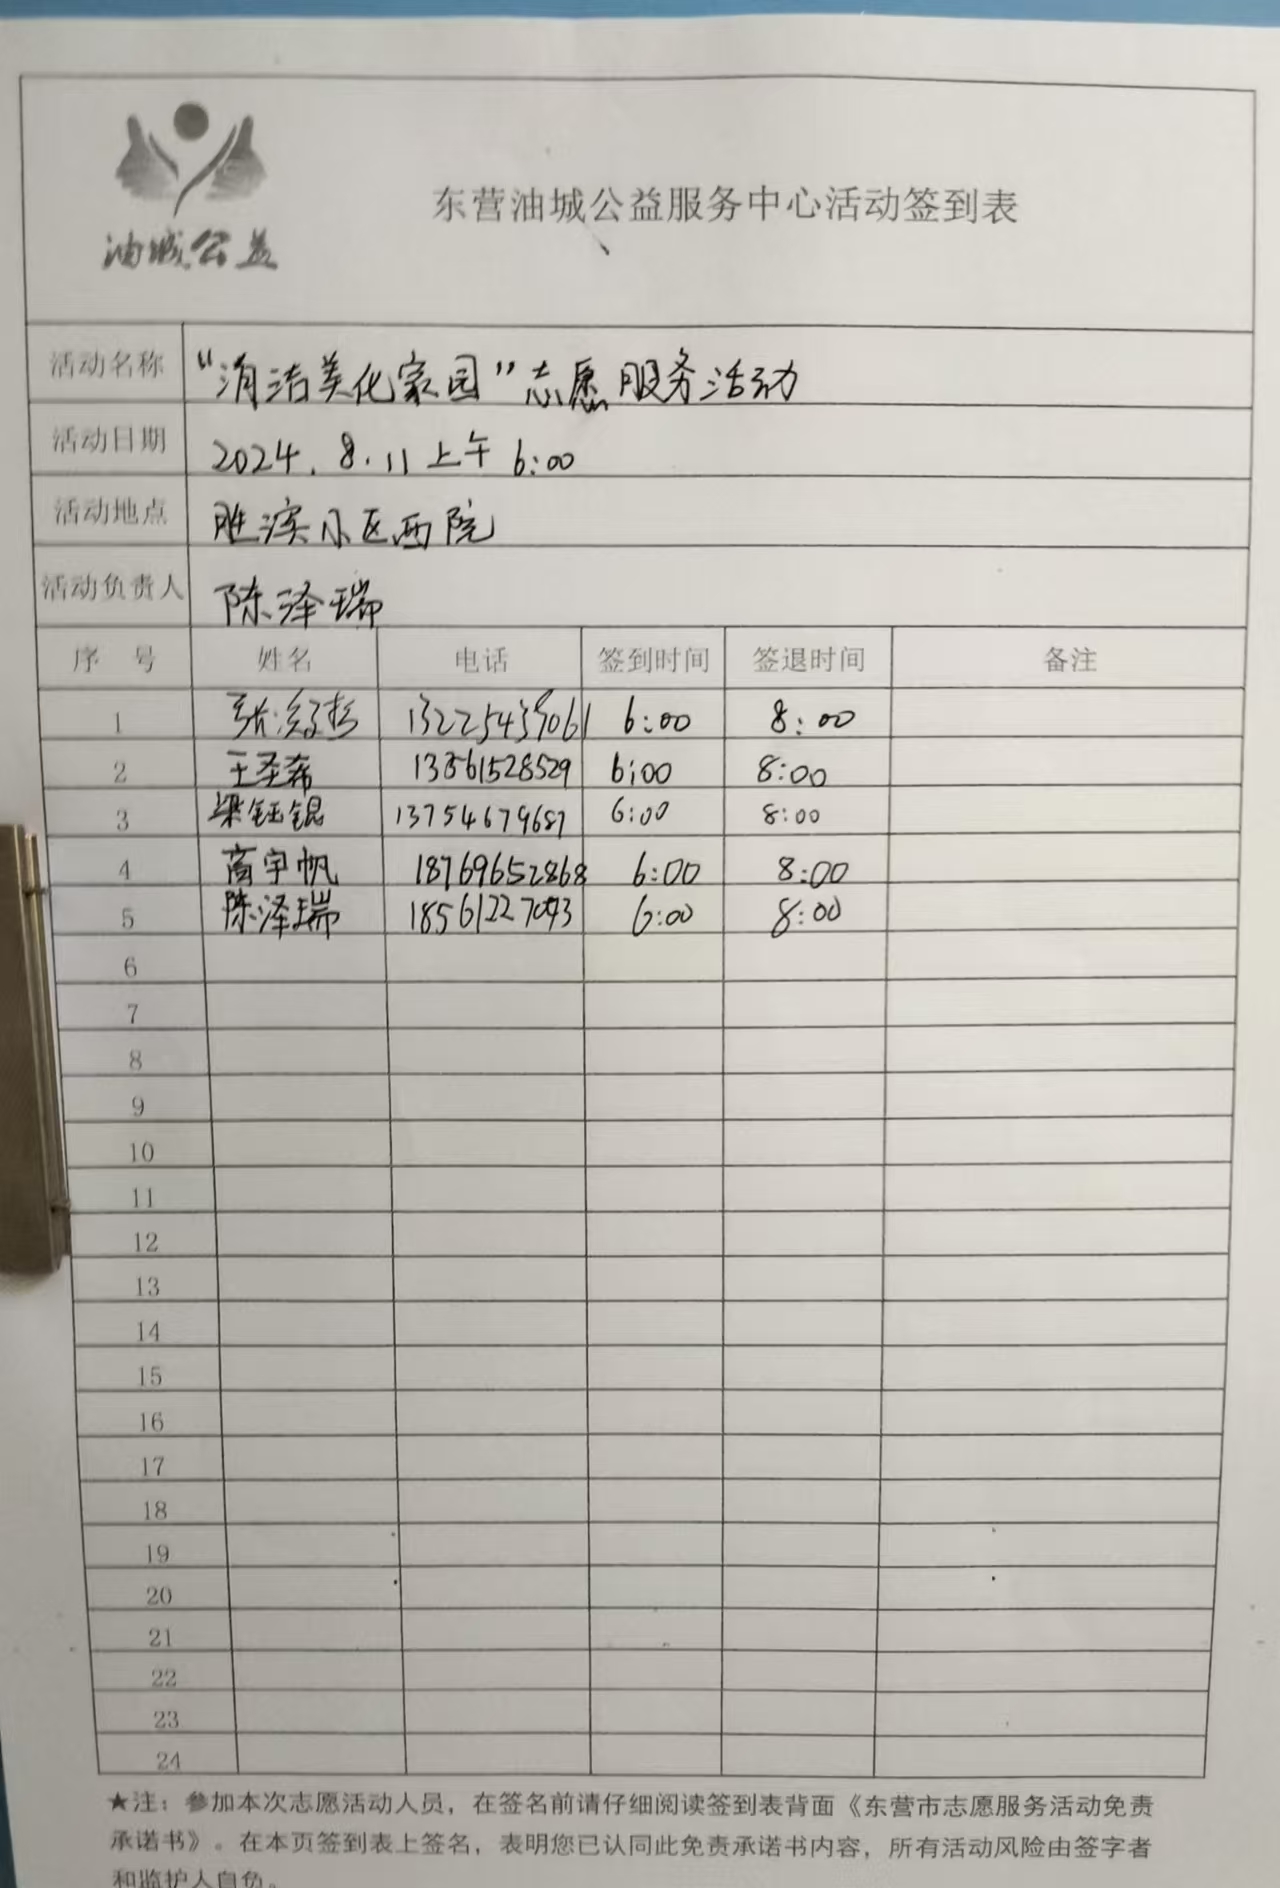 油城公益
东营油城公益服务中心活动签到表
活动名称 “清洁美化家园”志愿服务活动
活动日期 2024.8.11上午 6:00
活动地点 胜滨小区西院
活动负责人 陈泽瑞
序 号 姓名 电话 签到时间 签退时间 备注
1 张 13225439061 6:00 8:00
2 王圣希 13361528529 6:00 8:00
3 梁钰锟 13754679687 6:00 8:00
4 商宇帆 18769652868 6:00 8:00
5 陈泽瑞 18561227093 6:00 8:00
6
7
8
9
10
11
12
13
14
15
16
17
18
19
20
21
22
23
24
★注：参加本次志愿活动人员，在签名前请仔细阅读签到表背面《东营市志愿服务活动免责
承诺书》。在本页签到表上签名，表明您已认同此免责承诺书内容，所有活动风险由签字者
和监护人自负。